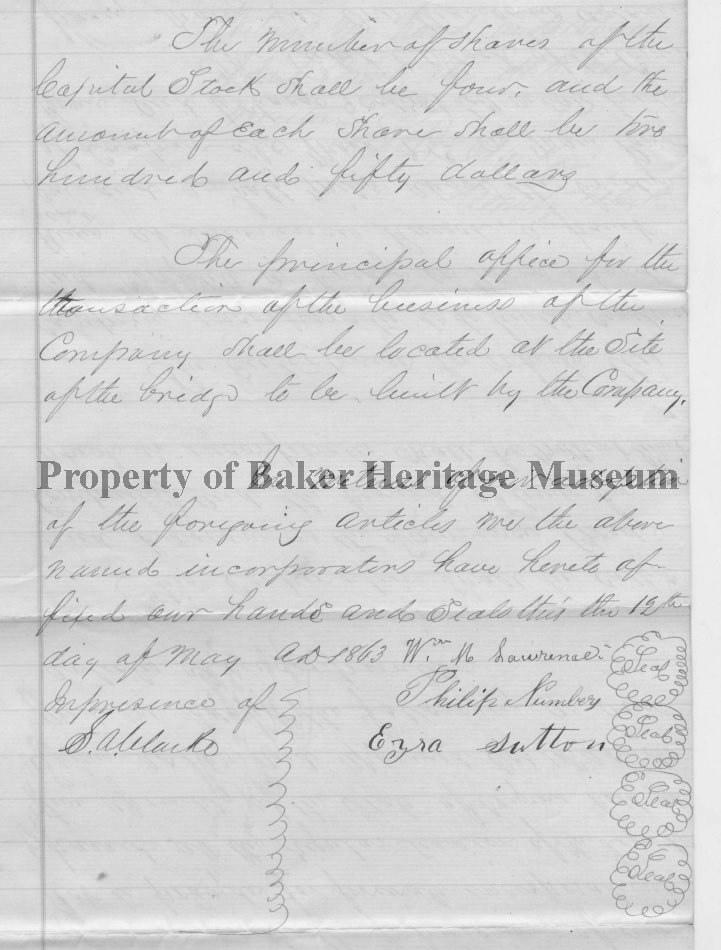 The number of shares of the
Capital Stock shall be four, and the
amount of Each Share shall be two
hundred and fifty dollars
The principal office for the
transaction of the business of the
Company shall be located at the Site
of the bridge to be built by the Company.
Property of Baker Heritage Museum
In witness of our adoption
of the foregoing articles we the above
named incorporators have hereto af-
fixed our hands and Seals this the 12th
day of May AD 1863 Wm M Lawrence Seal
In presence of Philip Numbers Seal
S. A. Clarke Ezra Sutton
Seal
Seal